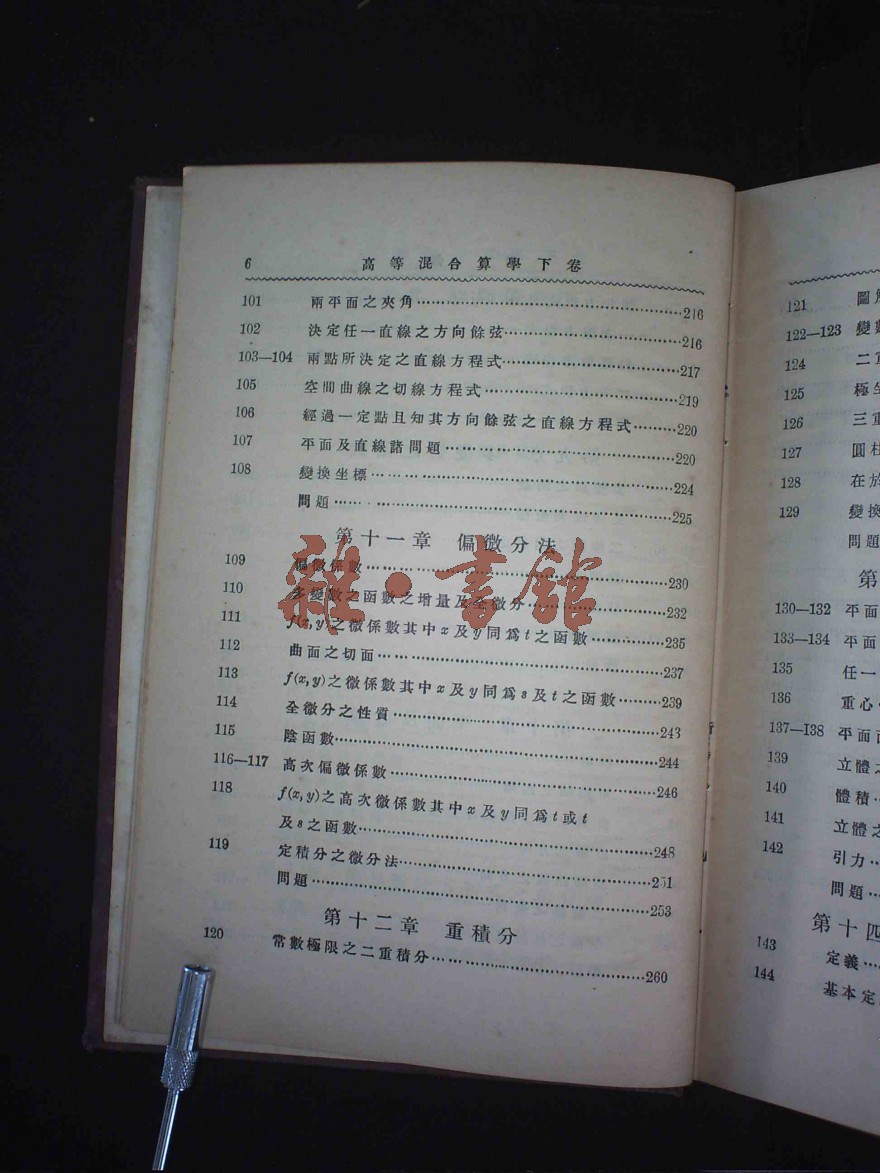 6 高等混合算學下卷
101 兩平面之夾角……216
102 決定任一直線之方向餘弦……216
103—104 兩點所決定之直線方程式……217
105 空間曲線之切線方程式……219
106 經過一定點且知其方向餘弦之直線方程式……220
107 平面及直線諸問題……220
108 變換坐標……224
問題……225
第十一章 偏微分法
109 偏微係數……230
110 多變數之函數之增量及全微分……232
111 f(x,y)之微係數其中x及y同爲t之函數……235
112 曲面之切面……237
113 f(x,y)之微係數其中x及y同爲s及t之函數……239
114 全微分之性質……243
115 陰函數……244
116—117 高次偏微係數……246
118 f(x,y)之高次微係數其中x及y同爲t或t
及s之函數……248
119 定積分之微分法……251
問題……253
第十二章 重積分
120 常數極限之二重積分……260
雜·書館
121 圖
122—123 變
124 二
125 極坐
126 三重
127 圓柱
128 在於
129 變換
問題
第
130—132 平面
133—134 平面
135 任一
136 重心
137—138 平面
139 立體之
140 體積
141 立體之
142 引力…
問題…
第十四
143 定義…
144 基本定